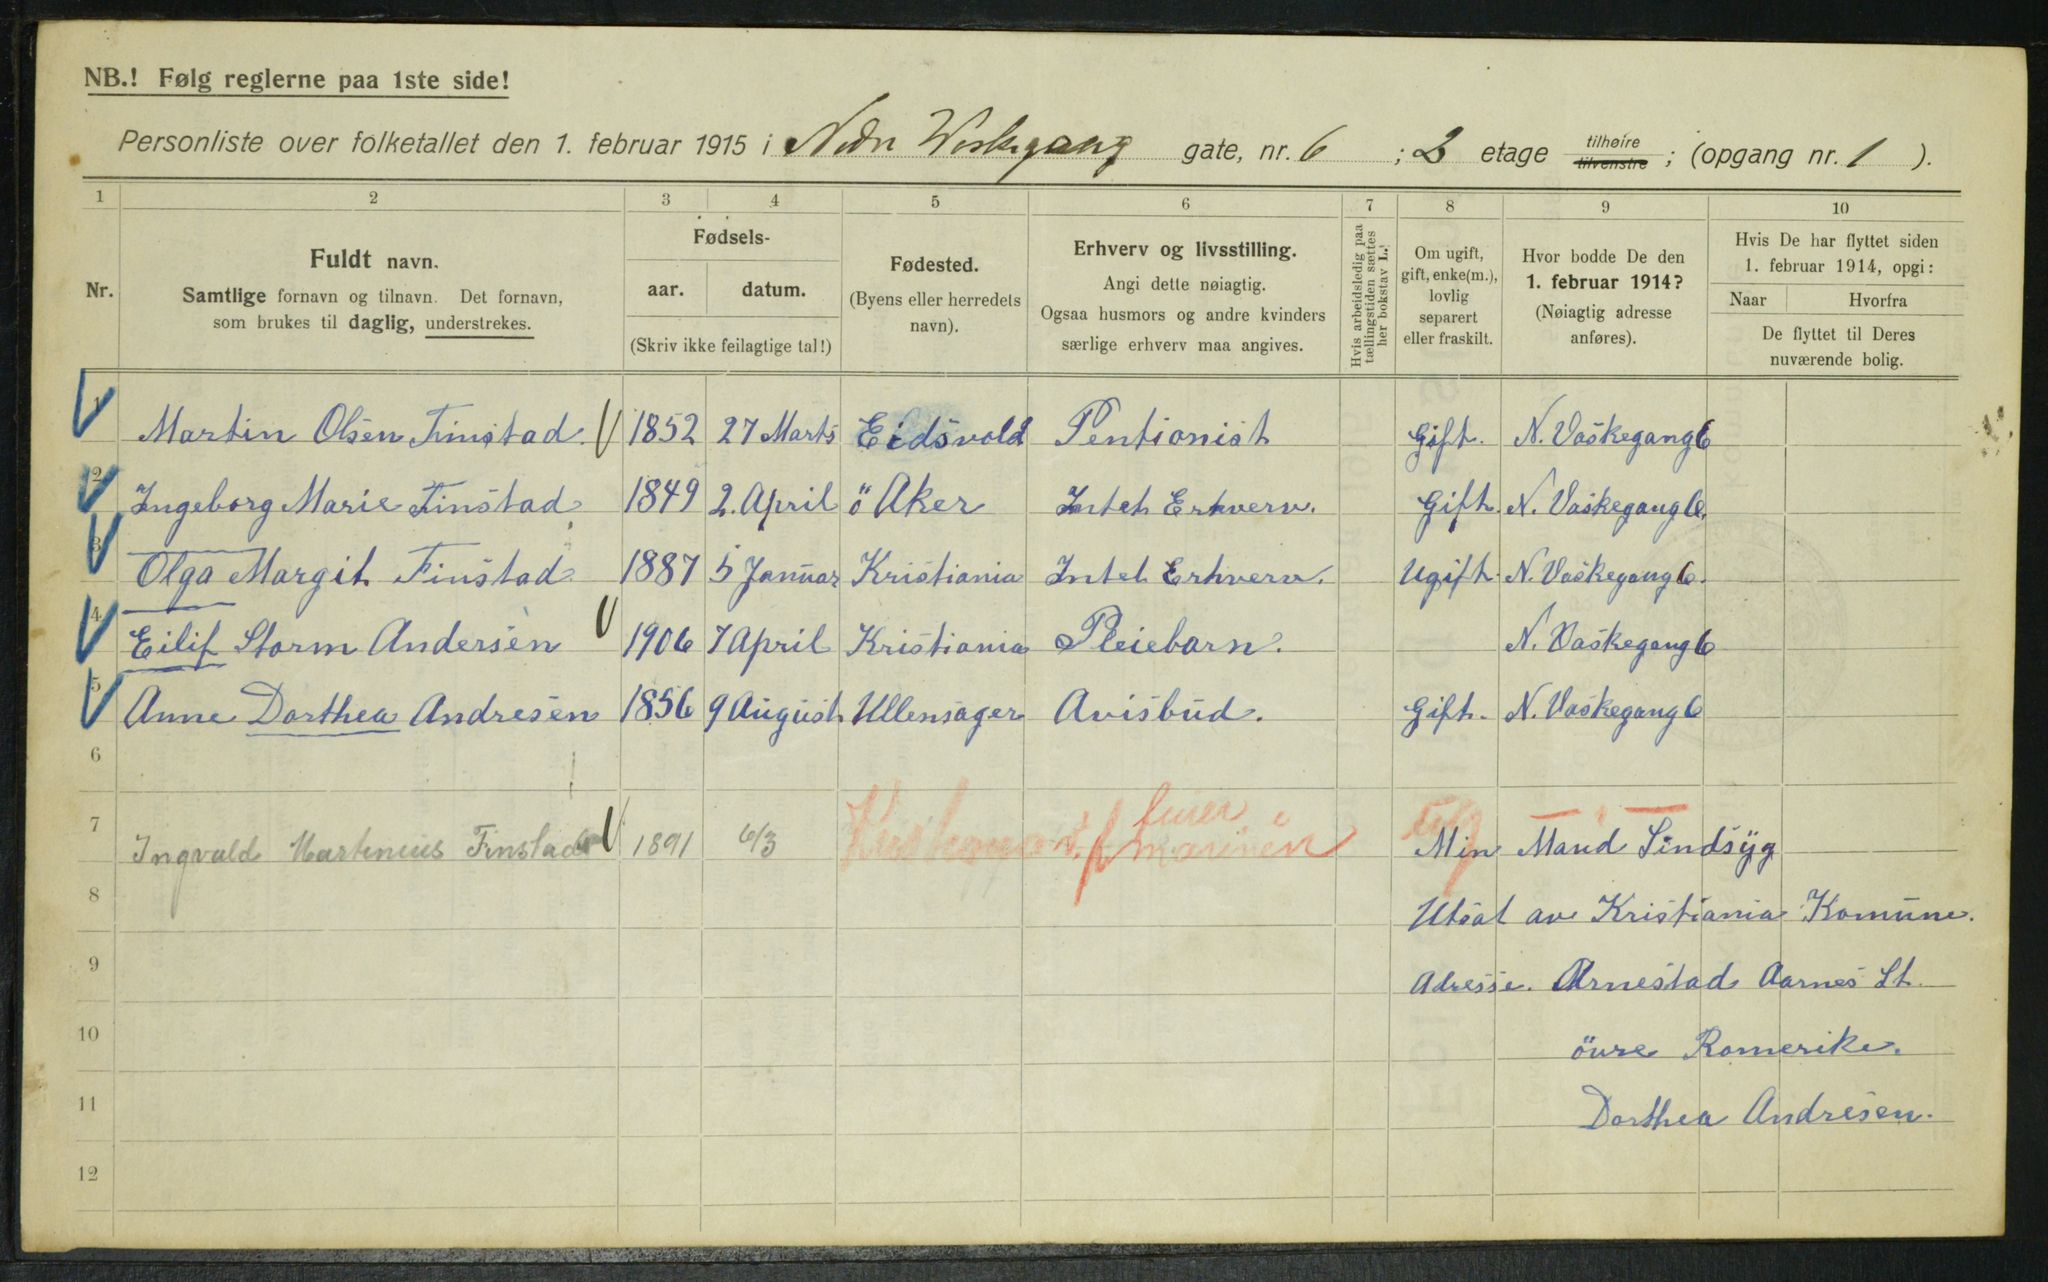 NB.! Følg reglerne paa 1ste side!
Personliste over folketallet den 1. februar 1915 i Nedre Vaskegang gate, nr. 6 ; 2 etage tilhøire tilvenstre ; (opgang nr. 1 ).
1 2 3 4 5 6 7 8 9 10
Nr.
Fuldt navn.
Samtlige fornavn og tilnavn. Det fornavn,
som brukes til daglig, understrekes.
Fødsels-
aar. datum.
(Skriv ikke feilagtige tal!)
Fødested.
(Byens eller herredets
navn).
Erhverv og livsstilling.
Angi dette nøiagtig.
Ogsaa husmors og andre kvinders
særlige erhverv maa angives.
Hvis arbeidsledig paa
tællingstiden sættes
her bokstav L.
Om ugift,
gift, enke(m.),
lovlig
separert
eller fraskilt.
Hvor bodde De den
1. februar 1914?
(Nøiagtig adresse
anføres).
Hvis De har flyttet siden
1. februar 1914, opgi:
Naar Hvorfra
De flyttet til Deres
nuværende bolig.
1 Martin Olsen Finstad. 1852 27 Marts Eidsvold Pentionist Gift. N. Vaskegang 6
2 Ingeborg Marie Finstad 1849 2. April ö Aker Intet Erhverv. Gift. N. Vaskegang 6.
3 Olga Margit Finstad 1887 5 Januar Kristiania Intet Erhverv. Ugift. N. Vaskegang 6.
4 Eilif Storm Andersen 1906 7 April Kristiania Pleiebarn. N. Vaskegang 6
5 Anne Dorthea Andresen 1856 9 August Ullensager Avisbud. Gift. N. Vaskegang 6
6
7 Ingvald Martinius Finstad 1891 6/3 marinen ug
Min Mand Sindsyg
8 Utsat av Kristiania Komune.
9 Adresse. Arnestad Aarnes St.
10 övre Romerike.
11 Dorthea Andresen.
12